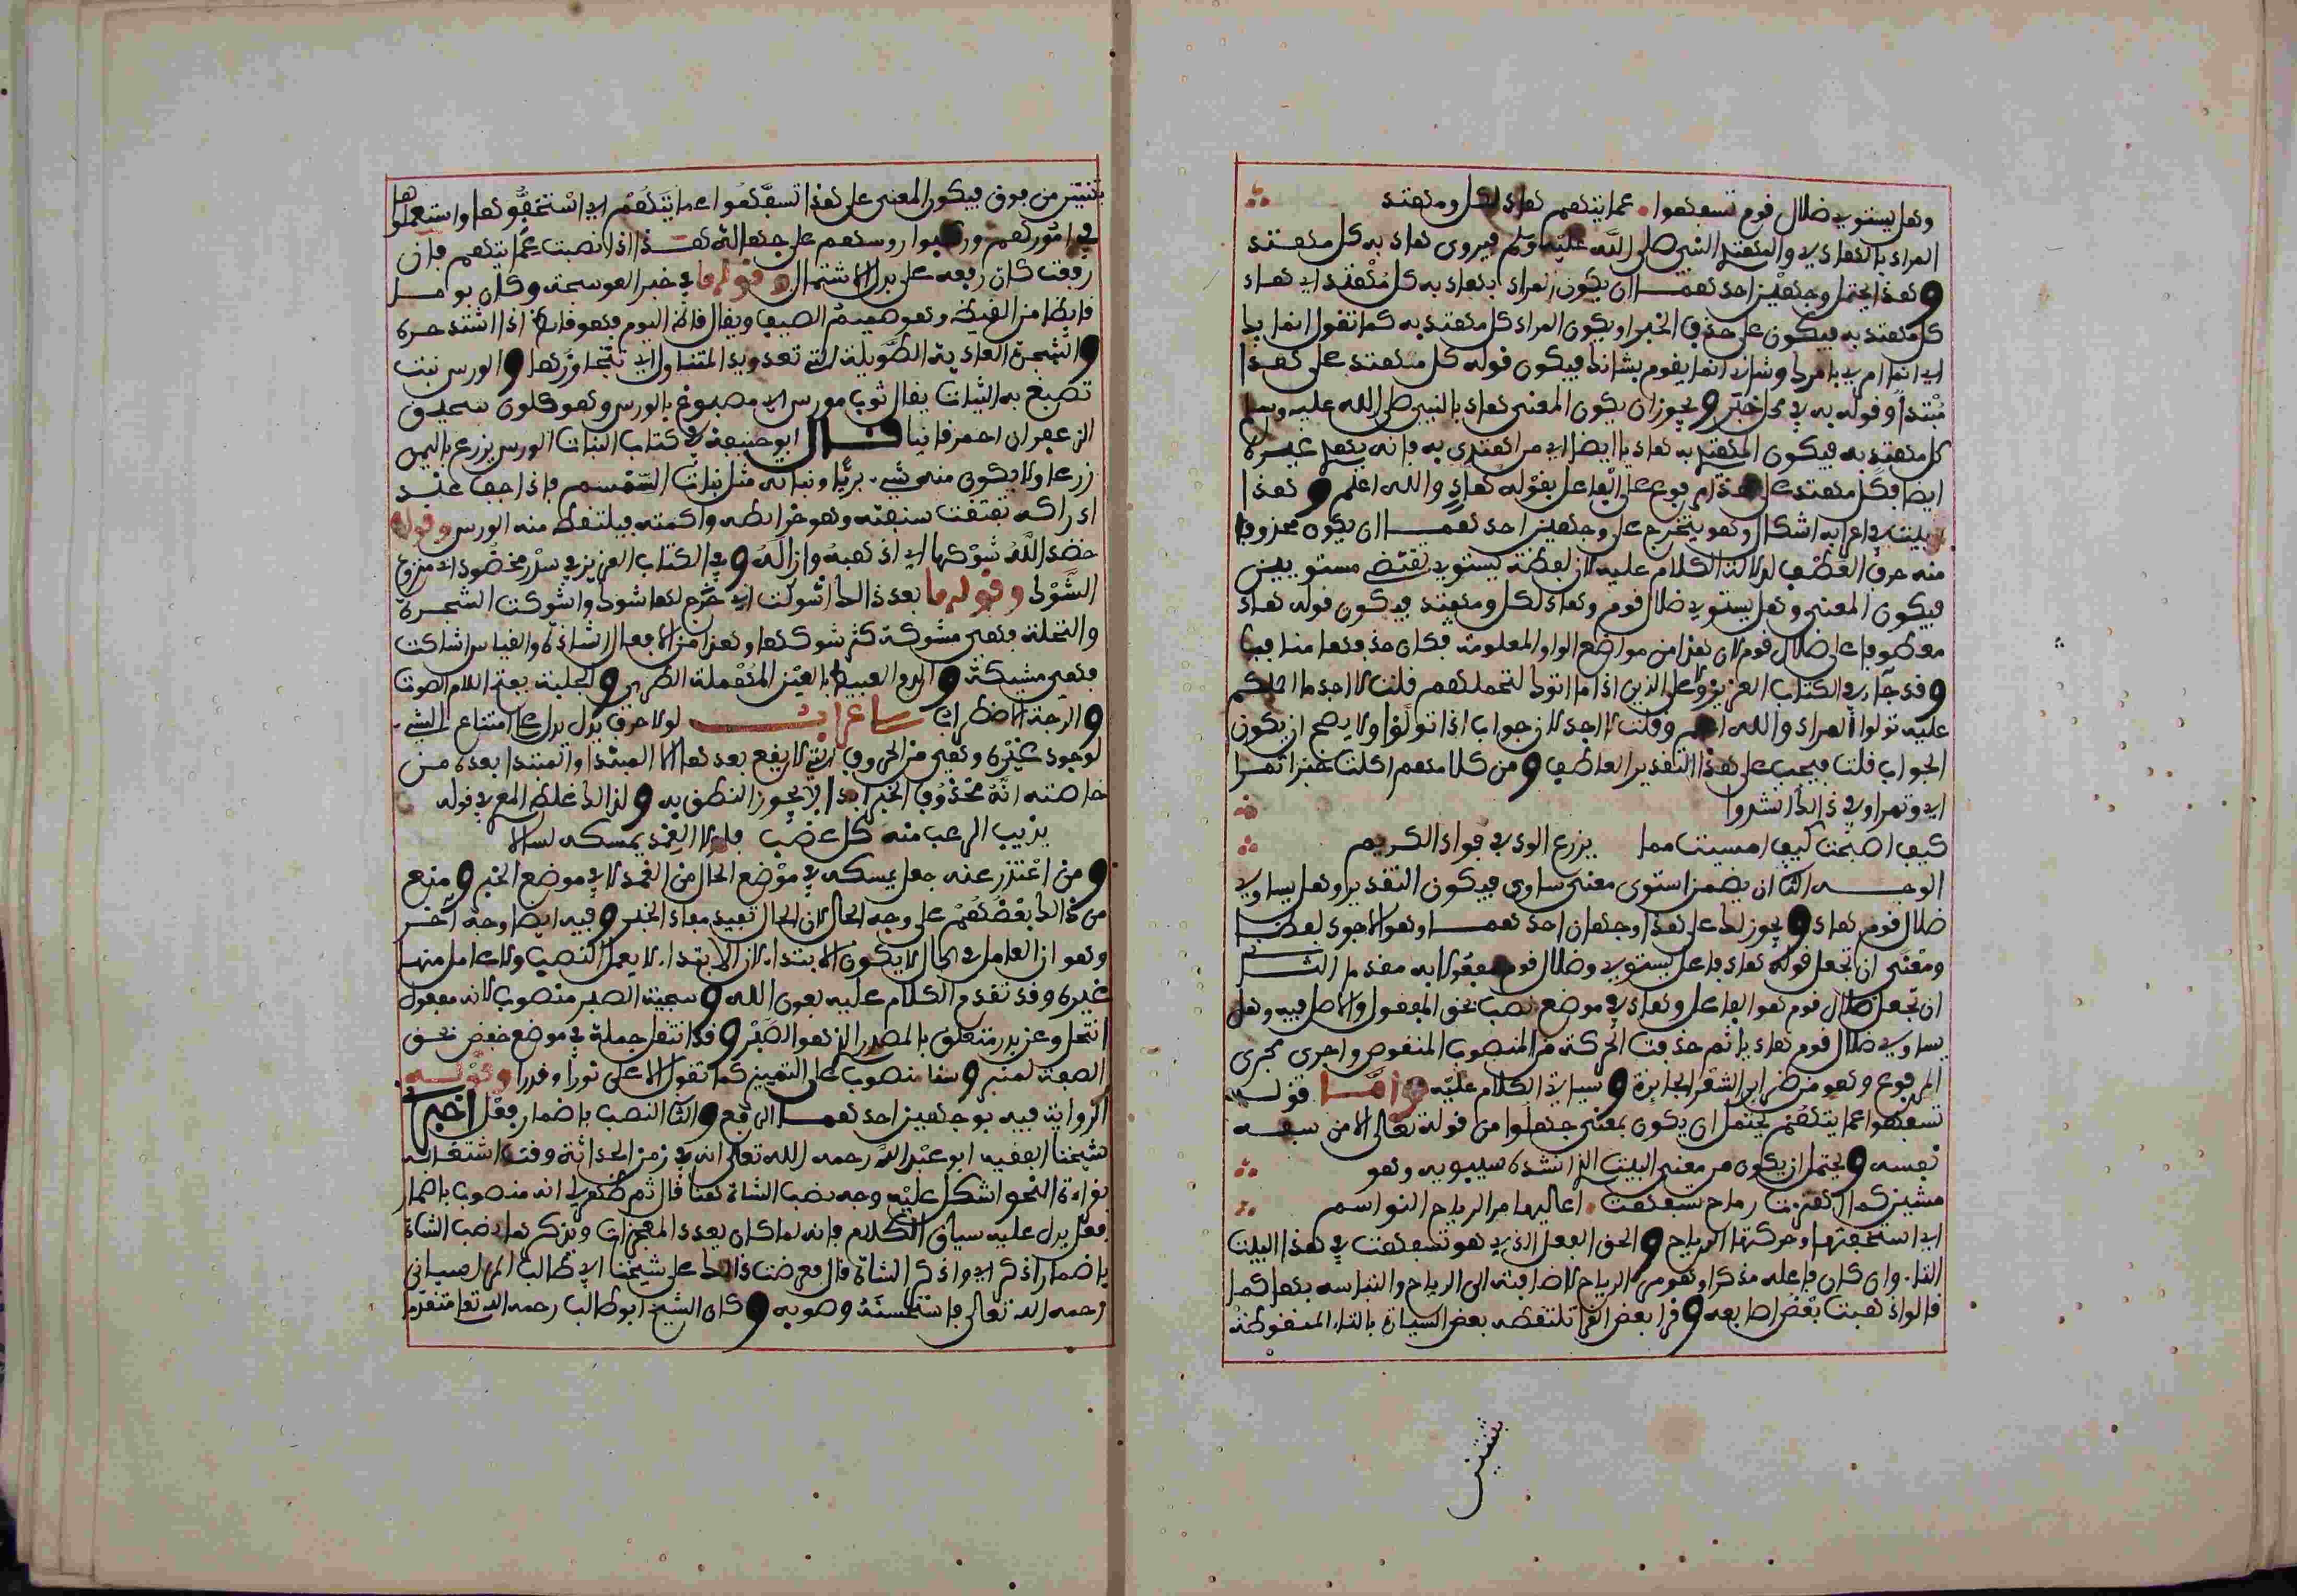 وهل يستوي ضلال قوم تسفهوا عمايتهم هاد لكل ومهتد
المراد بالهادي والمهتد النبي صلى الله عليه وسلم فيروى هاد به كل مهتد
وهذا يحتمل وجهين احدهما ان يكون المراد بهاد به كل مهتد اي هاد
كل مهتد به فيكون على حذف الخبر او يكون المراد كل مهتد به كما تقول انما بك
اي انما امري بامرك وشاني انما يقوم بشانك فيكون قوله كل مهتد على هذا
مبتدأ وقوله به في محل خبر ويجوز ان يكون المعنى هاد بالنبي صلى الله عليه وسلم
كل مهتد به فيكون المهتد به هاديا ايضا اي من اهتدى به فانه يهدي غيره
ايضا فكل مهتد على هذا مرفوع على الفاعل بقوله هاد والله اعلم وهذا
البيت في اعرابه اشكال وهو يتخرج على وجهين احدهما ان يكون محذوفا
منه حرف العطف لدلالة الكلام عليه لان لفظة يستوي تقتضي مستويين
فيكون المعنى وهل يستوي ضلال قوم وهاد لكل ومهتد فيكون قوله هاد
معطوفا على ضلال قوم لان هذا من مواضع الواو المعلومة فكان حذفها منا فيها
وقد جاء في الكتاب العزيز ولا على الذين اذا ما اتوك لتحملهم قلت لا اجد ما احملكم
عليه تولوا المراد والله اعلم وقلت لا اجد لان جواب اذا تولوا ولا يصح ان يكون
الجواب قلت فيجب على هذا التقدير العاطف ومن كلامهم اكلت خبزا تمرا
اي وتمرا وفي ذلك انشدوا
كيف اصبحت كيف امسيت مما يزرع الود في فواد الكريم
الوجه الثا ان يضمن استوى معنى ساوى فيكون التقدير وهل يساوي
ضلال قوم هاد ويجوز لك على هذا وجهان احدهما وهو الاجود لفظا
ومعنى ان تجعل قوله هاد فاعل يستوي وضلال قوم مفعولا به مقدما الثـ
ان تجعل ضلال قوم هو الفاعل وهاد في موضع نصب بحق المفعول والاصل فيه وهل
يساوي ضلال قوم هاديا ثم حذفت الحركة من المنصوب المنقوص واجرى مجرى
المرفوع وهو من ضراير الشعر الجايزة وسياتي الكلام عليه واما قولـه
تسفهوا عمايتهم يحتمل ان يكون بمعنى جهلوا من قوله تعالى الا من سفه
نفسه ويحتمل ان يكون من معنى البيت الذي انشده سيبويه وهو
مشين كما اهتزت رماح تسفهت اعاليها مر الرياح النواسم
اي استخفتها وحركتها الرياح والحق الفعل الذي هو تسفهت في هذا البيت
التاء وان كان فاعله مذكرا وهو مر الرياح لاضافته الى الرياح والتباسه بها كما
قالوا ذهبت بعض اصابعه وقرا بعض القرا تلتقطه بعض السيارة بالتاء المنقوطة
بثنتين
بثنتين من فوق فيكون المعنى على هذا تسفهوا عمايتهم اي استخفوها واستعملوها
في امورهم وركبوا روسهم على جهالة هذا اذا نصبت عمايتهم فان
رفعت كان رفعه على بدل الاشتمال وقولها في خبر العوسجة وكان يوما
قايظا من القيظ وهو صميم الصيف ويقال قاظ اليوم فهو قايظ اذا اشتد حره
والشجرة العادية الطويلة التي تعدو يد المتناول اي تتجاوزها والورس نبت
تصبغ به الثياب يقال ثوب مورس اي مصبوغ بالورس وهو كلون سحيق
الزعفران احمر قانيا قال ابو حنيفة في كتاب النبات الورس يزرع باليمن
زرعا ولا يكون منه شيء بريا ونباته مثل نبات السمسم فاذا جف عند
ادراكه تفتقت سنفته وهو خرايطه واكمته فيلتقط منه الورس وقوله
خضد الله شوكها اي اذهبه وازاله وفي الكتاب العزيز في سدر مخضود اي منزوع
الشوك وقولها بعد ذلك اشوكت اي خرج لها شوك واشوكت الشجرة
والنخلة فهي مشوكة كثر شوكها وهذا من الافعال الشاذة والقياس اشاكت
فهي مشيكة والدم العبيط بالعين المهملة الطري والجلبة بفتح اللام الصوت
والرجة الاضطراب ساعراب لولا حرف يدل على امتناع الشيء
لوجود غيره وهي من الحروف التي لا يقع بعدها الا المبتدا والمبتدا بعده من
خاصته انه محذوف الخبر ابدا لا يجوز النطق به ولذلك غلط المعري قوله
يذيب الرعب منه كل عضب فلولا الغمد يمسكه لسالا
ومن اعتذر عنه جعل يمسكه في موضع الحال من الغمد لا في موضع الخبر ومنع
من ذلك بعضهم على وجه الحال لان الحال تفيد مفاد الخبر وفيه ايضا وجه آخر
وهو ان العامل في الحال لا يكون الابتداء لان الابتداء لا يعمل النصب ولا عامل منها
غيره وقد تقدم الكلام عليه بعون الله وسجية الصبر منصوب لانه مفعول
انتحل وعن بدر متعلق بالمصدر الذي هو الصبر وقد انتحل جملة في موضع خفض بحق
الصفة لمنبر وسنا منصوب على التمييز كما تقول الاعلى نورا وقدرا وقوله
الرواية فيه بوجهين احدهما الرفع والثا النصب باضمار فعل اخبرني
شيخنا الفقيه ابو عبد الله رحمه الله تعالى انه في زمن الحداثة وقت اشتغاله
بقراءة النحو اشكل عليه وجه نصب الشاة هنا قال ثم ظهر لي انه منصوب باضمار
فعل يدل عليه سياق الكلام فانه لما كان يعدد المعجزات ويذكرها نصب الشاة
باضمار اذكر اي واذكر الشاة قال فعرضت ذلك على شيخنا ابي طالب
رحمه الله تعالى فاستحسنه وصوبه وكان الشيخ ابو طالب رحمه الله تعا متقدما